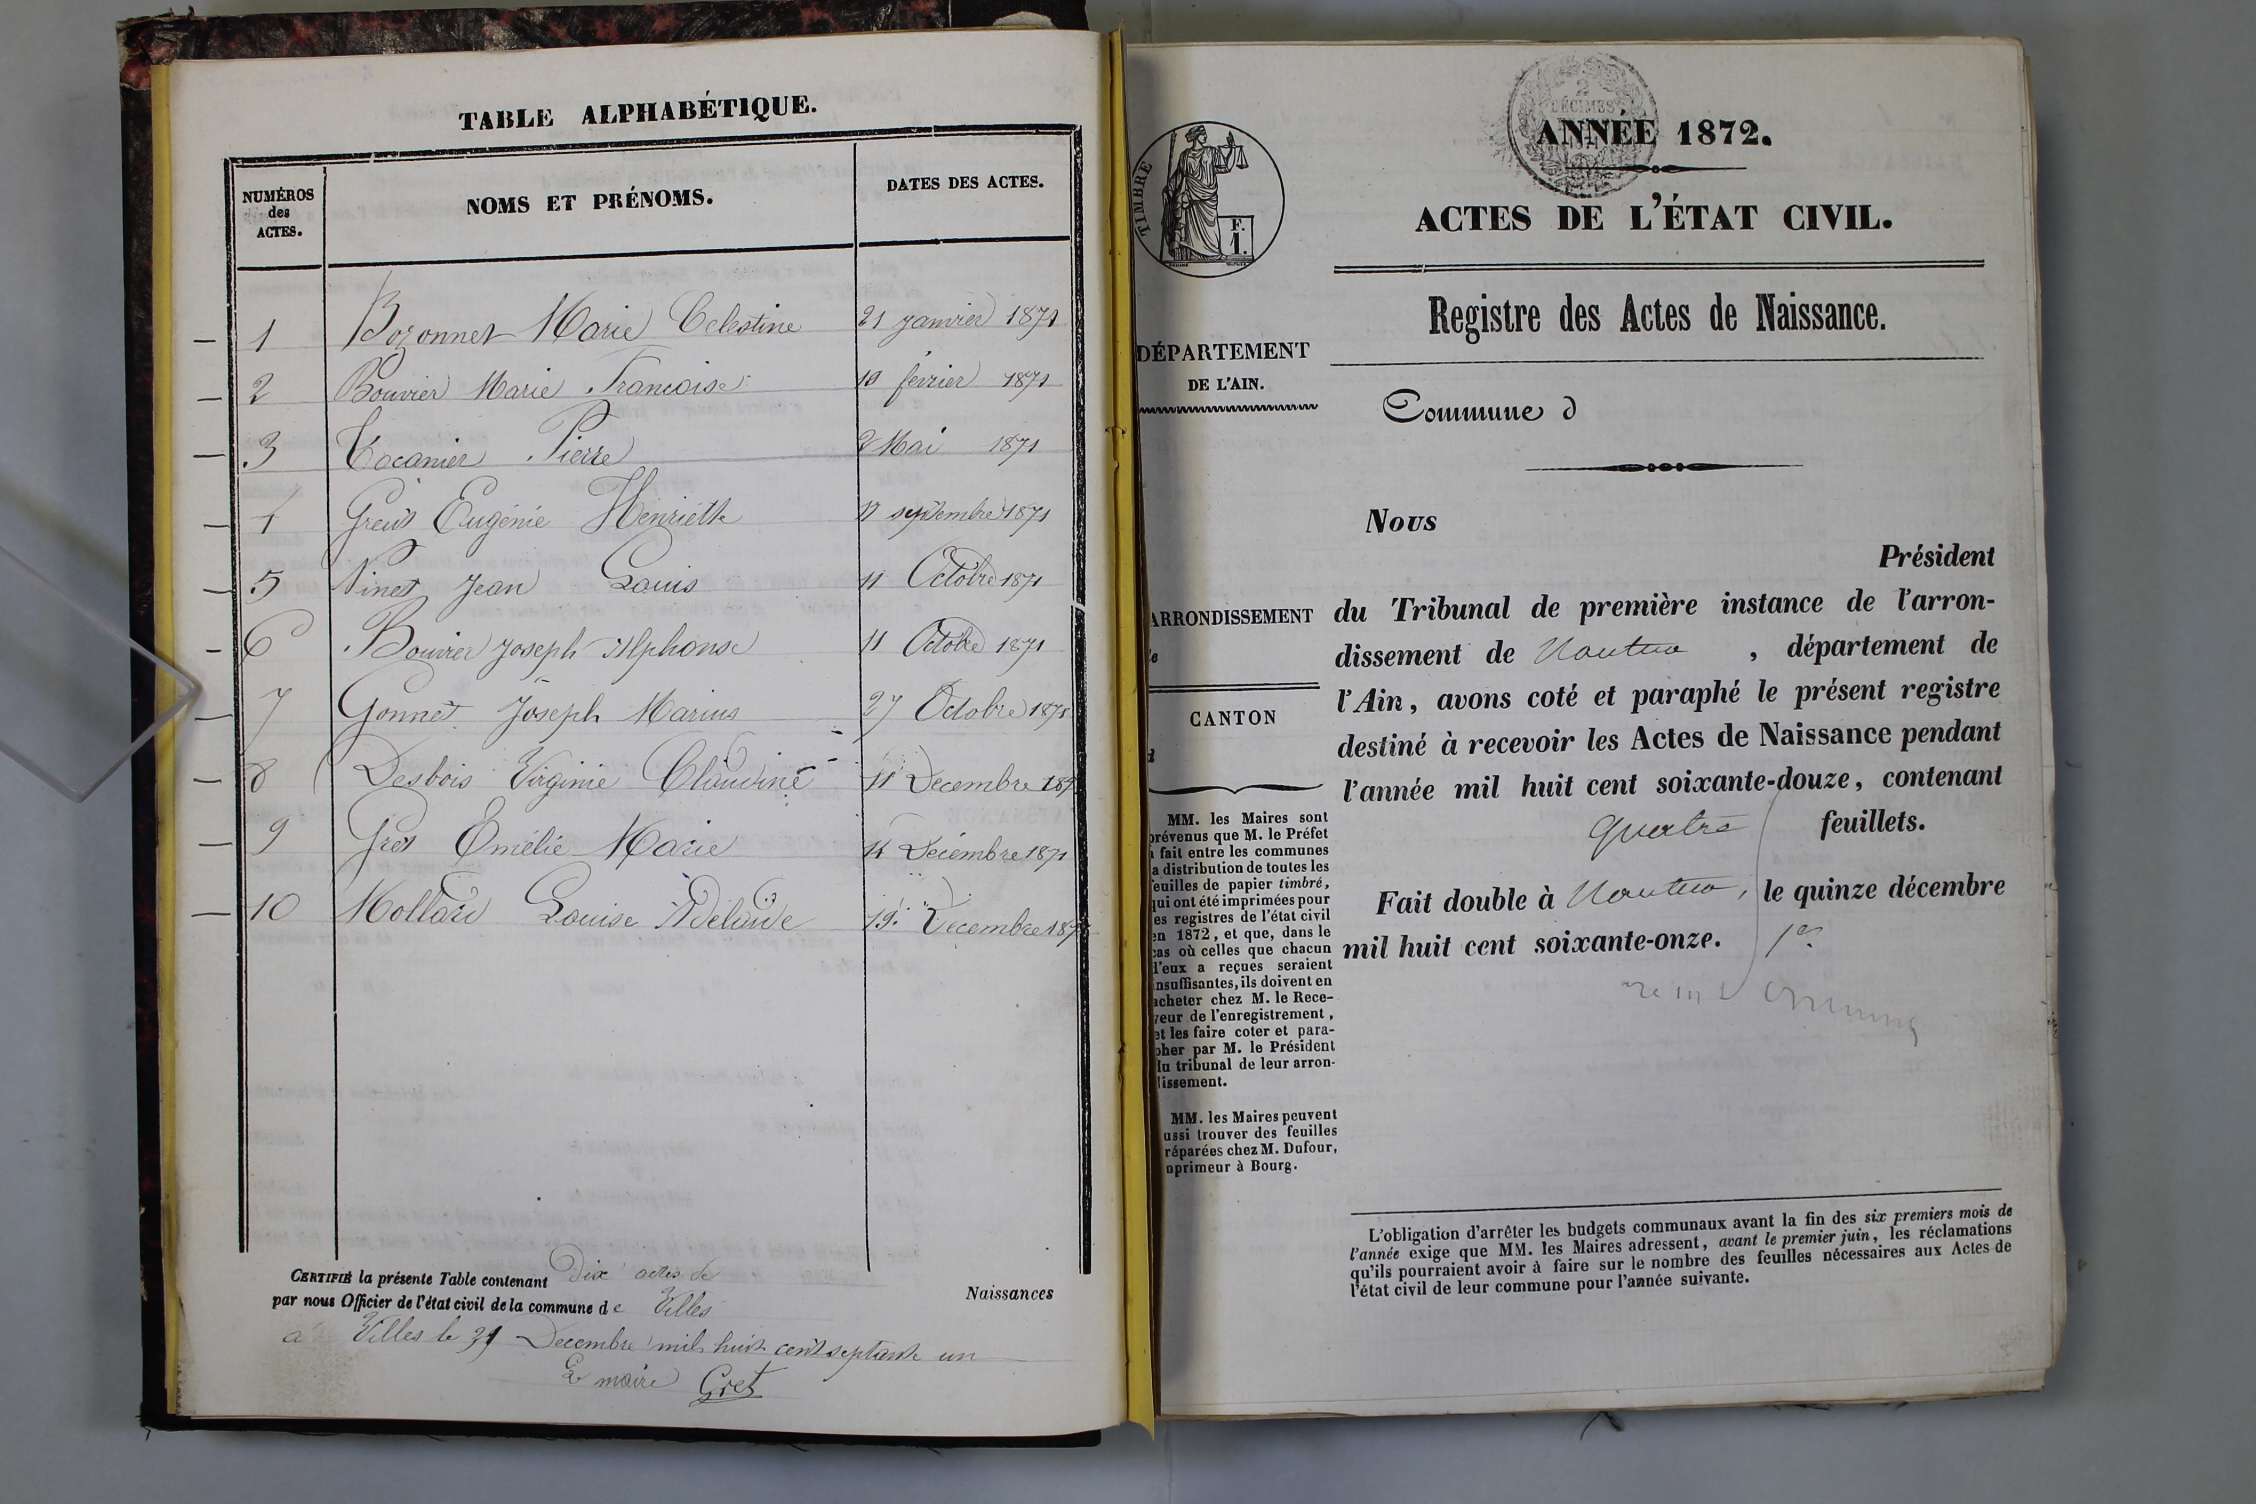 TABLE ALPHABÉTIQUE.
NUMÉROS
des
ACTES.
NOMS ET PRÉNOMS.
DATES DES ACTES.
1 Bozonnet Marie Celestine 21 janvier 1871
2 Bouvier Marie Francoise 10 fevrier 1871
3 Tocanier Pierre 2 Mai 1871
4 Eugénie Henriette 17 septembre 1871
5 Vinet Jean Louis 11 Octobre 1871
6 Bouvier Joseph Alphonse 11 Octobre 1871
7 Gonnet Joseph Marius 27 Octobre 1871
8 Desbois Virginie Claudine 11 Decembre 187
9 Gret Emélie Marie 14 Décembre 1871
10 Mollard Louise Adelaide 19 Decembre 187
CERTIFIÉ la présente Table contenant Dix actes de
Naissances
par nous Officier de l'état civil de la commune de Villes
a Villes le 31 Decembre mil huit cent septante un
Le maire Gret
2
DÉCIMES
ANNÉE 1872.
TIMBRE
F.
1.
ACTES DE L'ÉTAT CIVIL.
Registre des Actes de Naissance.
DÉPARTEMENT
DE L'AIN.
Commune d
Nous
Président
ARRONDISSEMENT
CANTON
du Tribunal de première instance de l'arron-
dissement de Nantua, département de
l'Ain, avons coté et paraphé le présent registre
destiné à recevoir les Actes de Naissance pendant
l'année mil huit cent soixante-douze, contenant
quatre feuillets.
Fait double à Nantua, le quinze décembre
mil huit cent soixante-onze. 1er
MM. les Maires sont
prévenus que M. le Préfet
a fait entre les communes
a distribution de toutes les
feuilles de papier timbré,
qui ont été imprimées pour
es registres de l'état civil
en 1872, et que, dans le
cas où celles que chacun
d'eux a reçues seraient
nsuffisantes, ils doivent en
acheter chez M. le Rece-
veur de l'enregistrement,
et les faire coter et para-
pher par M. le Président
du tribunal de leur arron-
dissement.
MM. les Maires peuvent
ussi trouver des feuilles
réparées chez M. Dufour,
mprimeur à Bourg.
L'obligation d'arrêter les budgets communaux avant la fin des six premiers mois de
l'année exige que MM. les Maires adressent, avant le premier juin, les réclamations
qu'ils pourraient avoir à faire sur le nombre des feuilles nécessaires aux Actes de
l'état civil de leur commune pour l'année suivante.